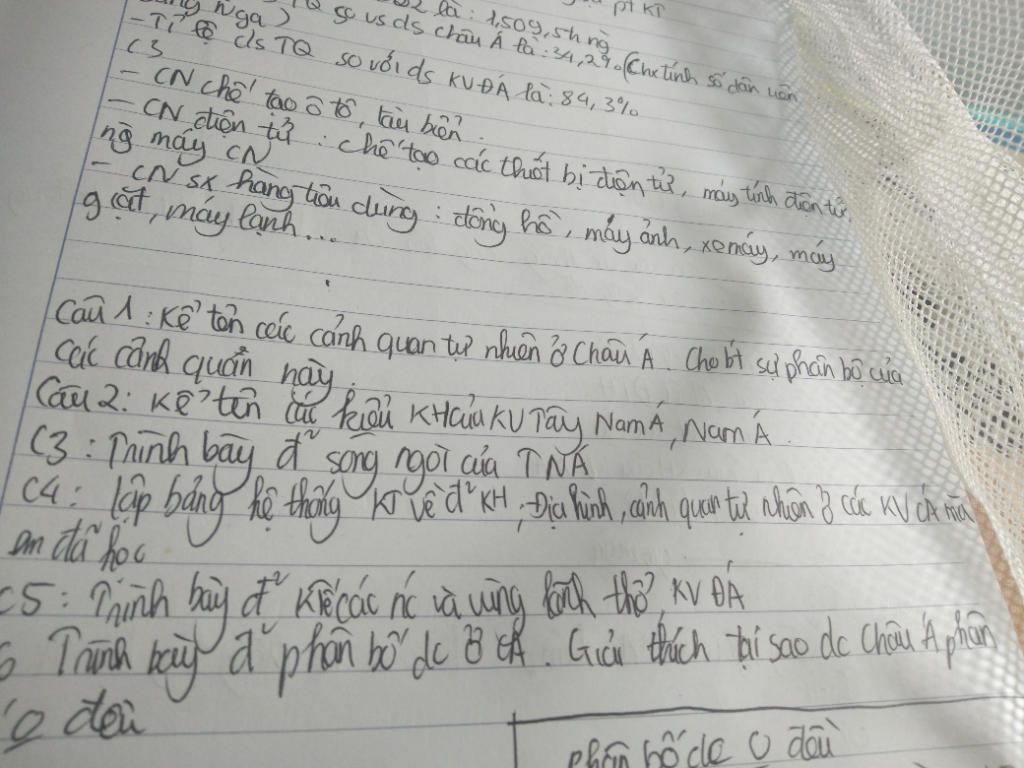 2 là: 1,509,5h ng
pt KT
ng nga) TQ so vs ds châu Á là: 34,2% (Chx tính số dân liên
- Tỉ lệ ds TQ so với ds KVĐÁ là: 84,3%
C3
- CN chế tạo ô tô, tàu biển.
- CN điện tử: chế tạo các thiết bị điện tử, máy tính điện tử
ng máy CN
- CN sx hàng tiêu dùng: đồng hồ, máy ảnh, xe máy, máy
giặt, máy lạnh...
Câu 1: Kể tên các cảnh quan tự nhiên ở Châu Á. Cho bt sự phân bộ của
các cảnh quan này.
Câu 2: Kể tên các kiểu KH của KV Tây Nam Á, Nam Á.
C3: Trình bày đ² sông ngòi của TNÁ
C4: lập bảng hệ thống KT về đ² KH, Địa hình, cảnh quan tự nhiên ở các KV CÁ mà
em đã học
C5: Trình bày đ² KT các nc và vùng lãnh thổ KV ĐÁ
6 Trình bày đ² phân bố dc ở CÁ. Giải thích tại sao dc Châu Á phân
O đều
phân bố dc O đều